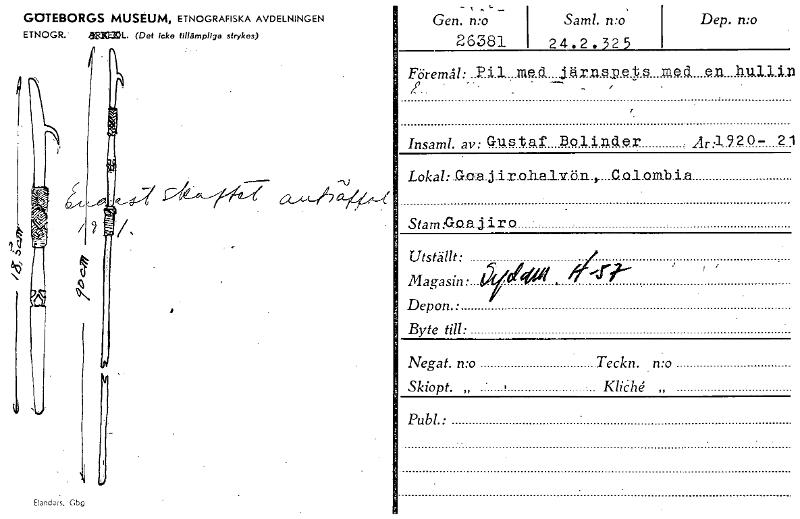 GÖTEBORGS MUSEUM, ETNOGRAFISKA AVDELNINGEN
ETNOGR. ARKEOL. (Det icke tillämpliga strykes)
18,5cm
90cm
Endast skaftet anträffat
Elanders, Gbg
Gen. n:o Saml. n:o Dep. n:o
26381 24.2.325
Föremål: Pil med järnspets med en hullin
Insaml. av: Gustaf Bolinder År: 1920-21
Lokal: Goajirohalvön, Colombia
Stam: Goajiro
Utställt:
Magasin: Sydam. H-57
Depon.:
Byte till:
Negat. n:o Teckn. n:o
Skiopt. „ Kliché „
Publ.: